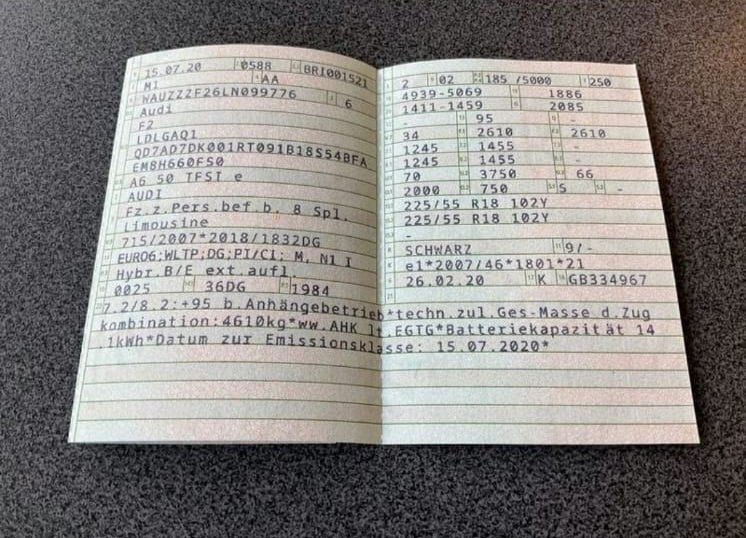 15.07.20 0588 BRI001521
M1 AA
WAUZZZF26LN099776 6
Audi
F2
LDLGAQ1
QD7AD7DK001RT091B18S54BFA
EM8H660F50
A6 50 TFSI e
AUDI
Fz.z.Pers.bef.b. 8 Spl.
Limousine
715/2007*2018/1832DG
EURO6;WLTP;DG;PI/CI; M, N1 I
Hybr.B/E ext.aufl.
0025 36DG 1984
2 02 185 /5000 250
4939-5069 1886
1411-1459 2085
95 -
34 2610 2610
1245 1455 -
1245 1455 -
70 3750 66
2000 750 S -
225/55 R18 102Y
225/55 R18 102Y
-
SCHWARZ 9/-
e1*2007/46*1801*21
26.02.20 K GB334967
7.2/8.2:+95 b.Anhängebetrieb*techn.zul.Ges-Masse d.Zug
kombination:4610kg*ww.AHK lt.EGTG*Batteriekapazität 14
.1kWh*Datum zur Emissionsklasse: 15.07.2020*